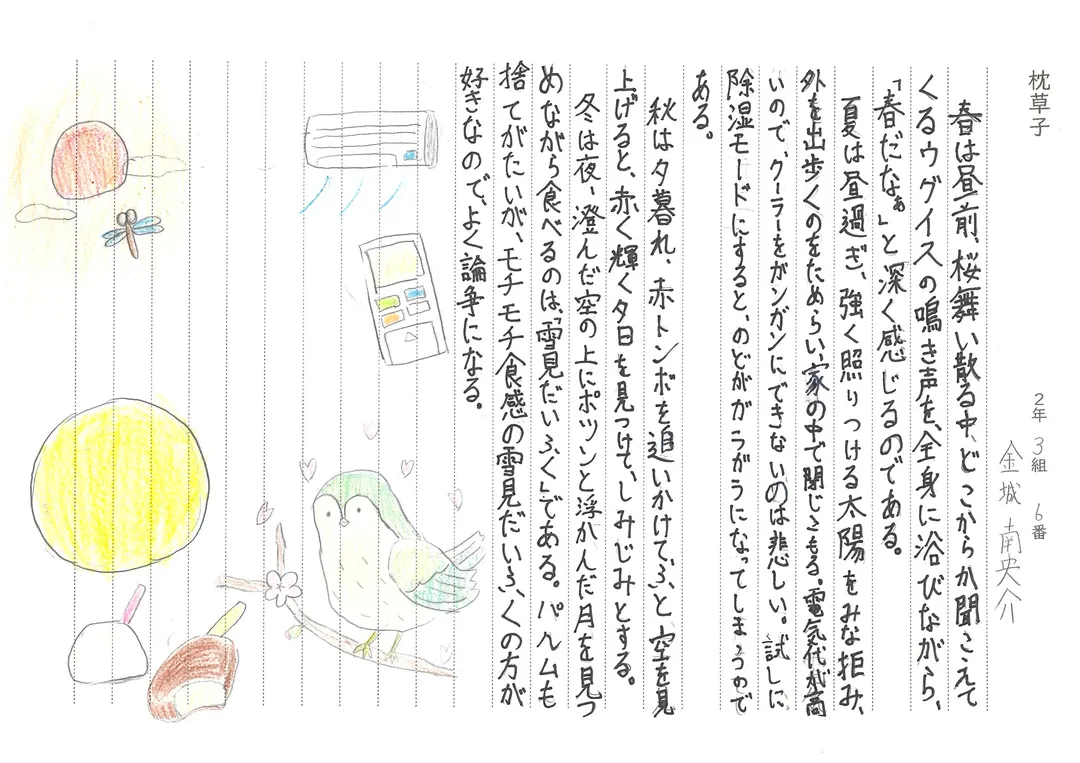 枕草子
2年 3組 6番
金城 南央介
春は昼前、桜舞い散る中、どこからか聞こえて
くるウグイスの鳴き声を、全身に浴びながら、
「春だなぁ」と深く感じるのである。
夏は昼過ぎ、強く照りつける太陽をみな拒み、
外を出歩くのをためらい、家の中で閉じこもる。電気代が高
いので、クーラーをガンガンにできないのは悲しい。試しに
除湿モードにすると、のどがガラガラになってしまうので
ある。
秋は夕暮れ、赤トンボを追いかけて、ふと空を見
上げると、赤く輝く夕日を見つけて、しみじみとする。
冬は夜、澄んだ空の上にポツンと浮かんだ月を見つ
めながら食べるのは、「雪見だいふく」である。パルムも
捨てがたいが、モチモチ食感の雪見だいふくの方が
好きなので、よく論争になる。